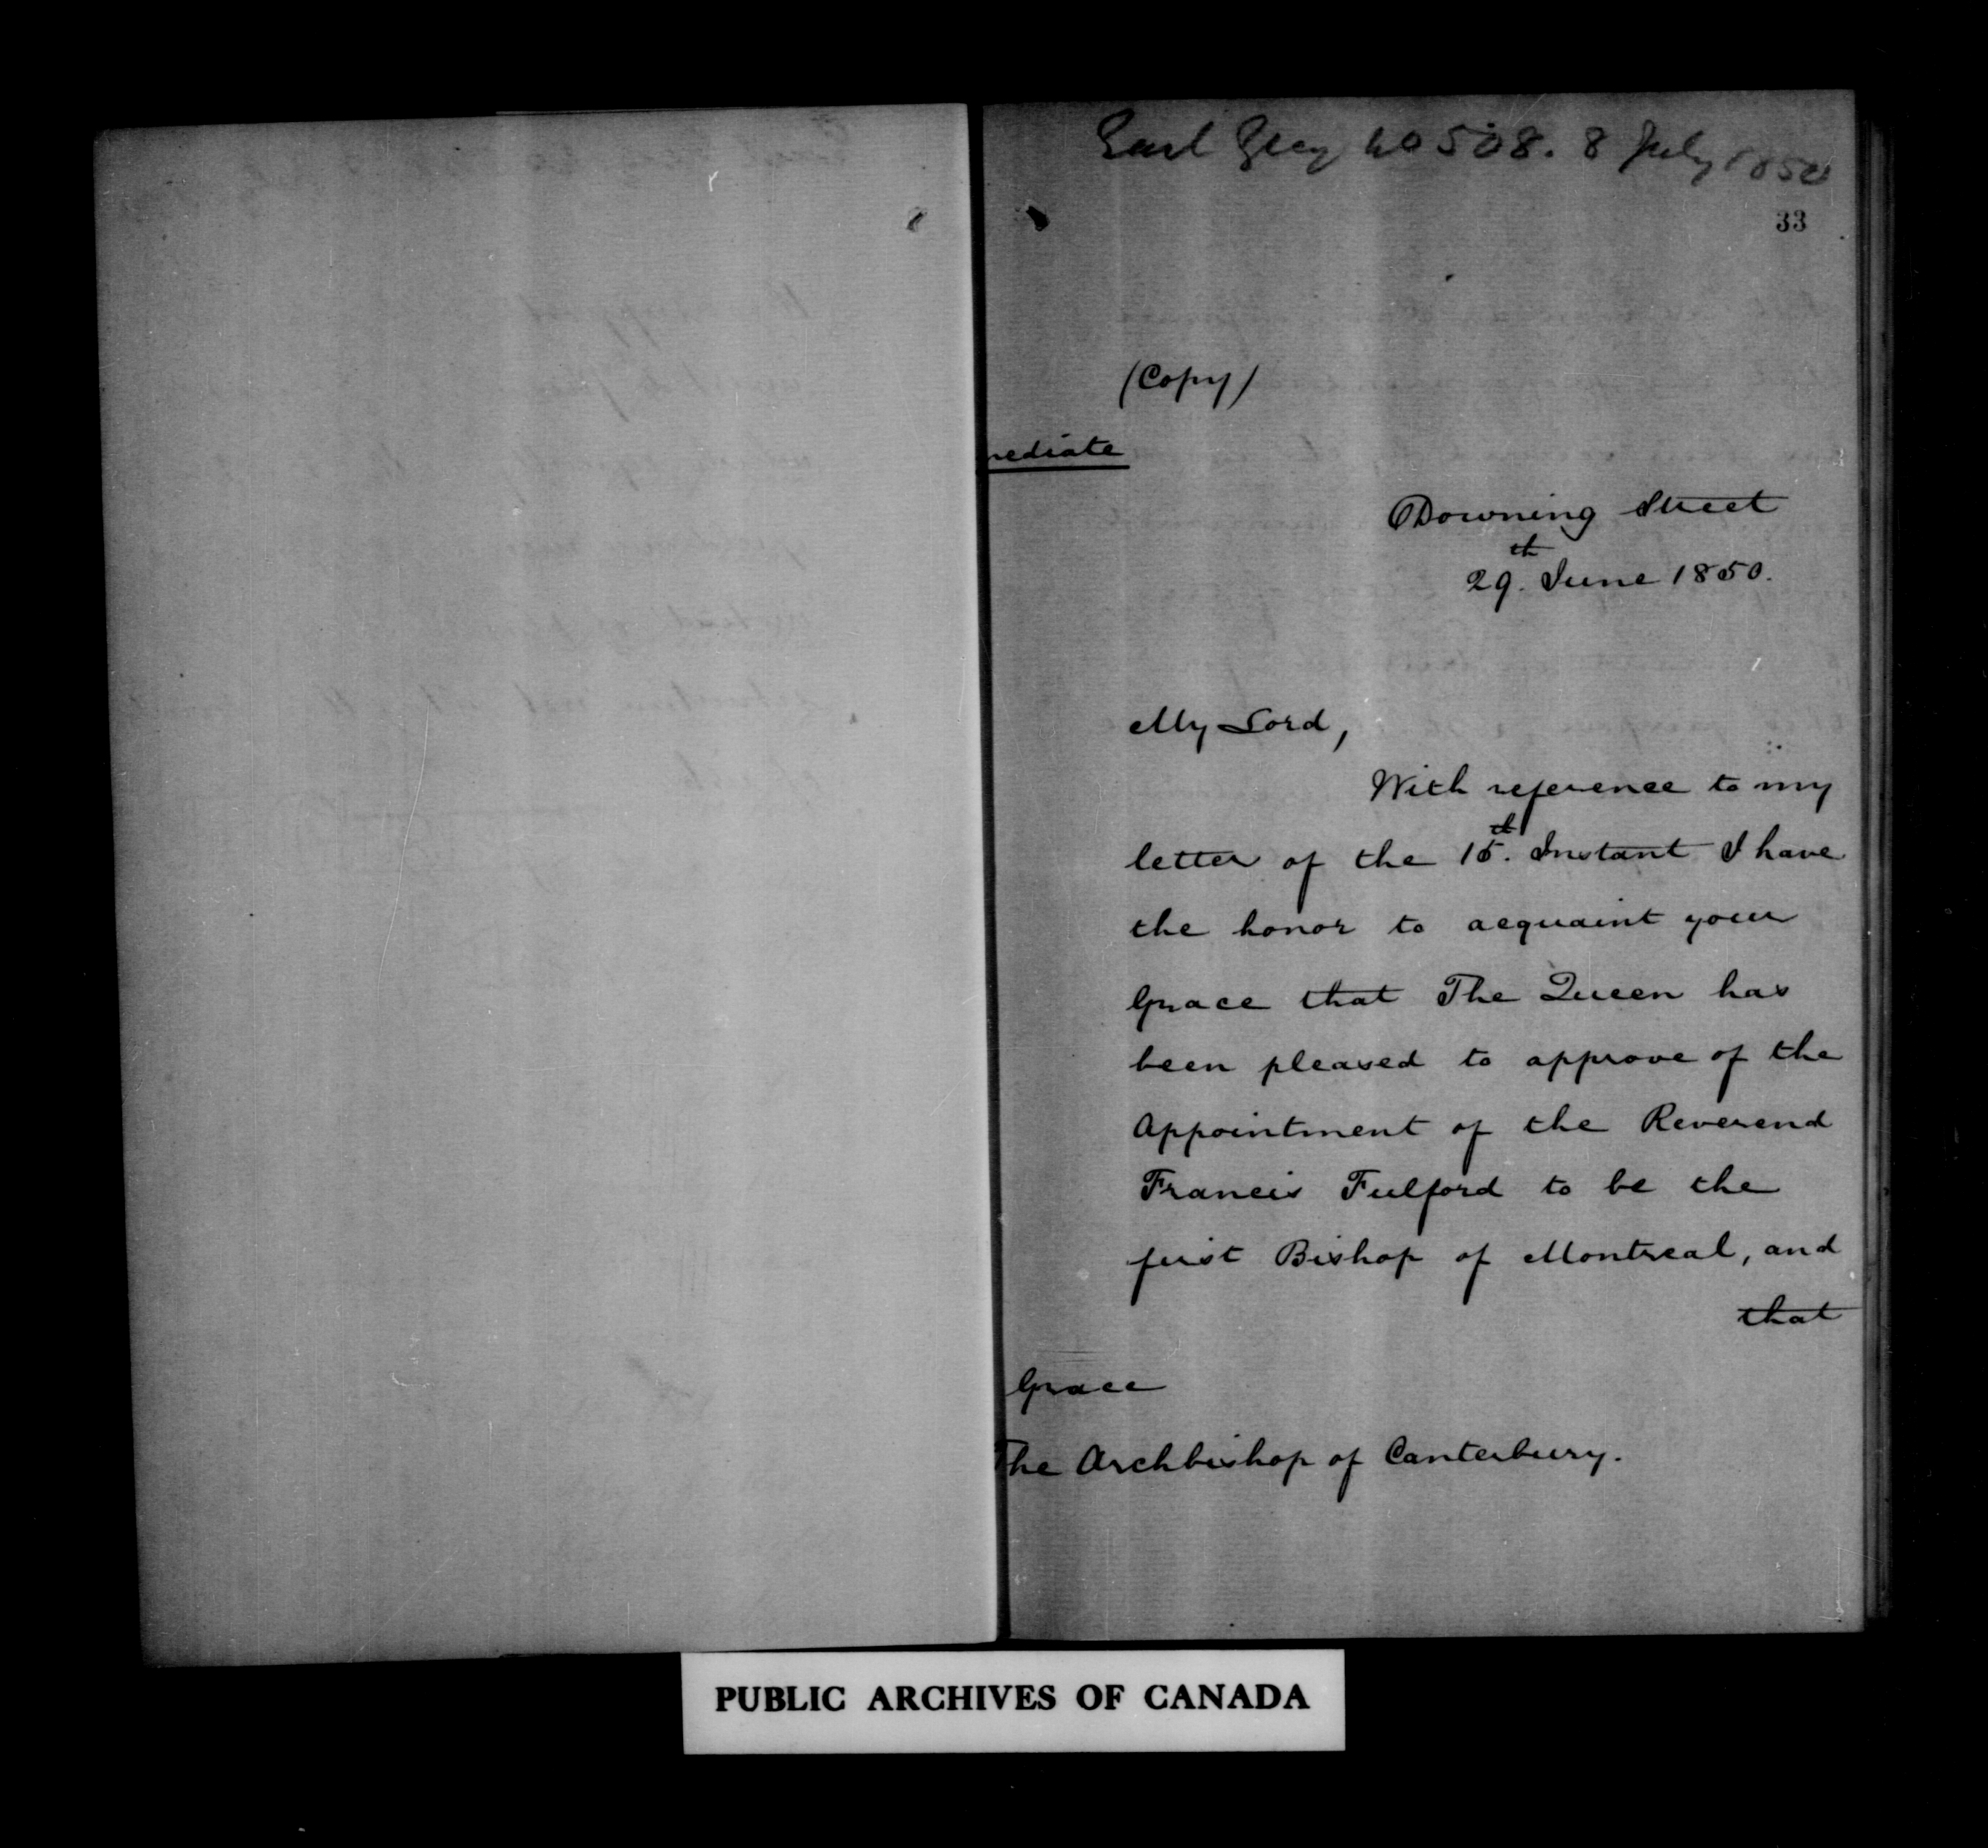 Earl Grey No 508. 8 July 1850
33
(Copy)
mediate
Downing Street
29th. June 1850.
My Lord,
With reference to my
letter of the 15th. Instant I have
the honor to acquaint your
Grace that The Queen has
been pleased to approve of the
Appointment of the Reverend
Francis Fulford to be the
first Bishop of Montreal, and
that
Grace
The Archbishop of Canterbury.
PUBLIC ARCHIVES OF CANADA